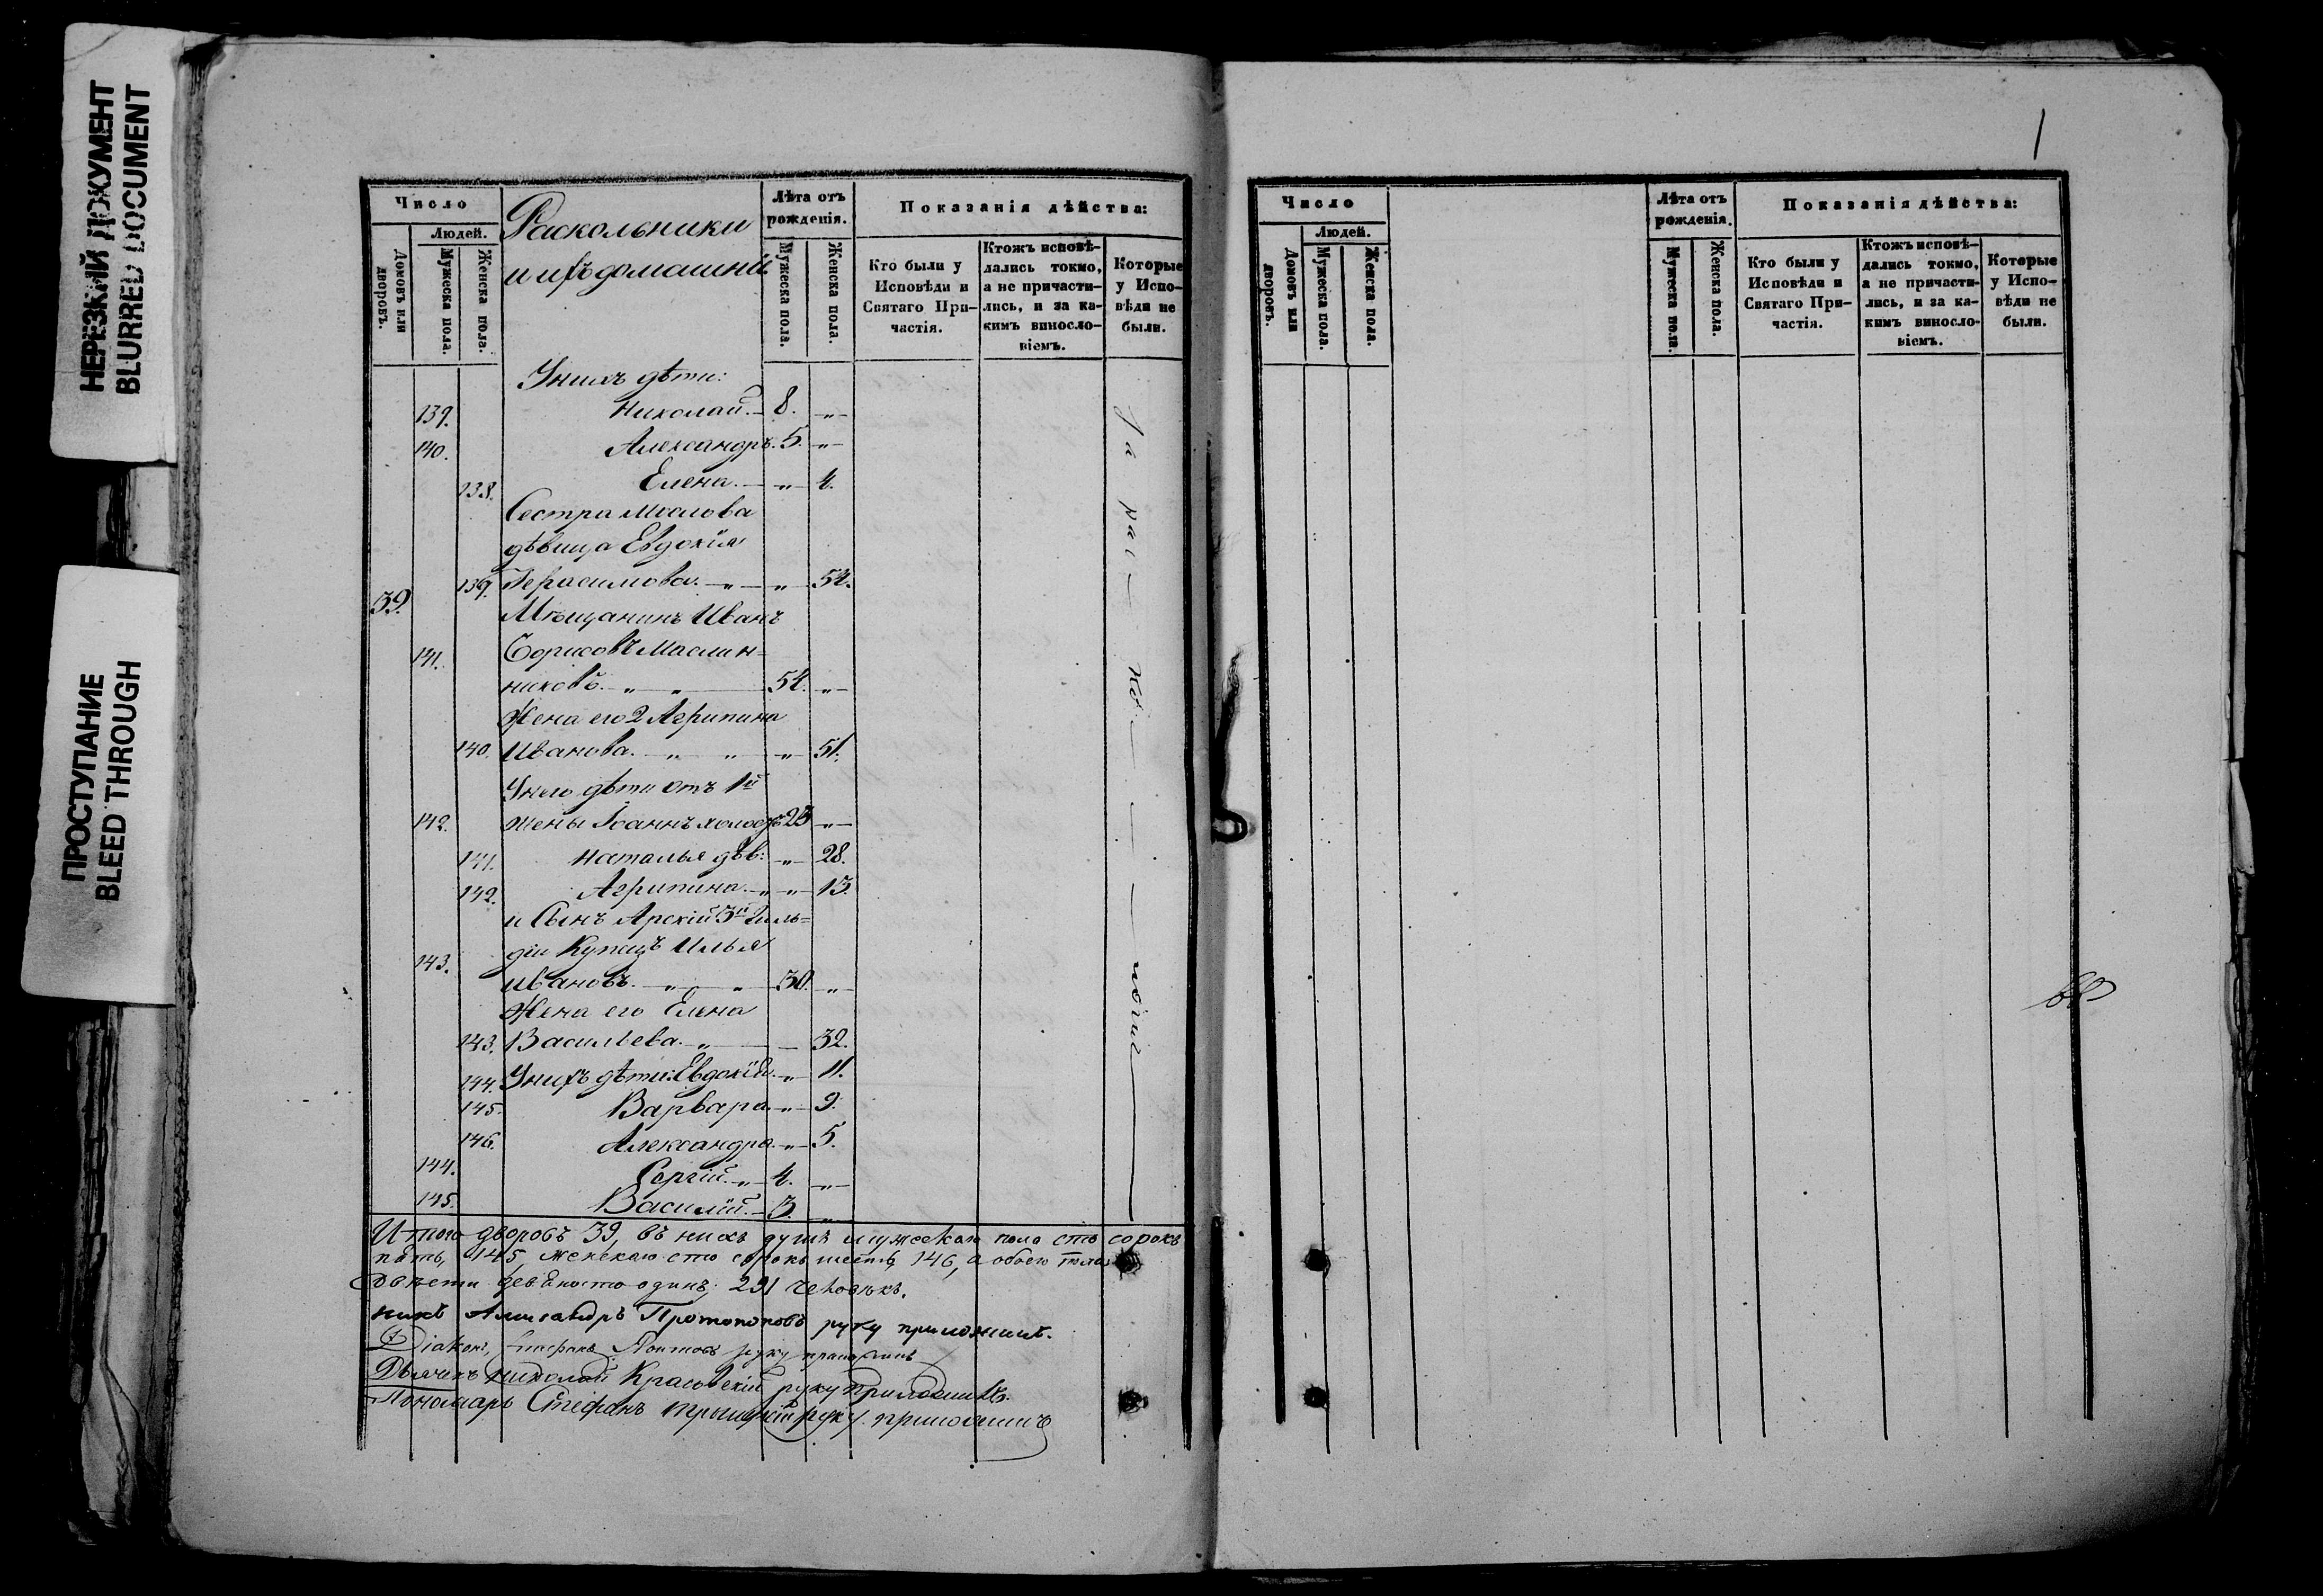 НЕРЕЗКИЙ ДОКУМЕНТ
BLURRED DOCUMENT
ПРОСТУПАНИЕ
BLEED THROUGH
Число
Людей.
Домовъ или дворовъ.
Мужеска пола.
Женска пола.
Раскольники
и ихъ домашніи
Лѣта отъ рожденія.
Мужеска пола.
Женска пола.
Показанія дѣйства:
Кто были у Исповѣди и Святаго При-частія.
Ктожъ исповѣ-дались токмо, а не причасти-лись, и за ка-кимъ винносло-віемъ.
Которые у Испо-вѣди не были.
У нихъ дѣти:
139. Николай. — 8. „
140. Александръ. 5. „
138. Елена. — „ 4.
Сестра
дѣвица Евдокія
139. Герасимова. „ „ 54.
39. Мѣщанинъ Иванъ
141. Борисовъ Маслен=
никовъ. „ „ 54. „
Жена его 2 Агрипина
140. Иванова. „ „ „ 51.
У него дѣти отъ 1й
142. жены Іоаннъ холост 23 „
141. Наталья дѣв: „ 28.
142. Агрипина. „ „ 13.
и Сынъ Арскій 3й Гиль=
143. діи Купецъ Илья
Ивановъ. „ „ 30. „
Жена его Елена
143. Васильева. „ — 32.
144. У нихъ дѣти: Евдокія. „ 11.
145. Варвара. „ 9.
146. Александра. „ 5.
144. Сергій. „ 4. „
145. Василій. — 3. „
За рас-
ко-
Итого дворовъ 39, въ нихъ душъ мужеска пола сто сорокъ
пять, 145, женскаго сто сорокъ шесть, 146, а обоего пола
двѣсти девяносто одинъ, 291 человѣкъ.
никъ Александръ Протопоповъ руку приложилъ.
Діаконъ руку приложилъ
Дьячекъ Николай Красовскій руку приложилъ.
Пономарь Стефанъ руку приложилъ
1
Число
Людей.
Домовъ или дворовъ.
Мужеска пола.
Женска пола.
Лѣта отъ рожденія.
Мужеска пола.
Женска пола.
Показанія дѣйства:
Кто были у Исповѣди и Святаго При-частія.
Ктожъ исповѣ-дались токмо, а не причасти-лись, и за ка-кимъ винносло-віемъ.
Которые у Испо-вѣди не были.